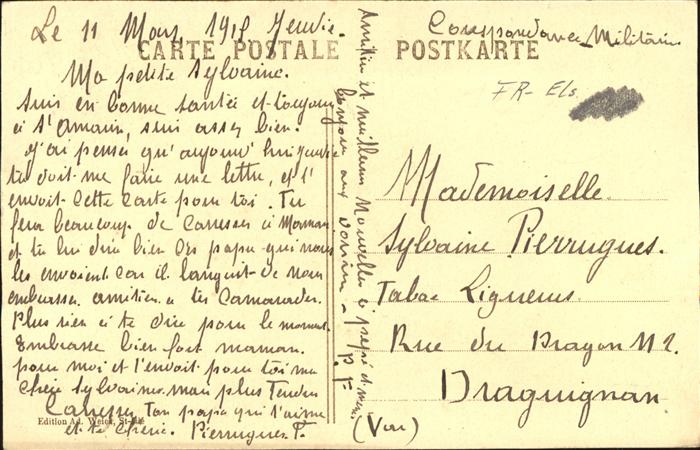 Le 11 Mars 1918 Jeudie.
CARTE POSTALE
POSTKARTE
Correspondance Militaire
FR- Els
Ma petite Sylvaine.
Suis en bonne santée et toujours
à St Amarin, suis assez bien.
J'ai pensée qu'aujourd'hui Jeudie
tu doit me faire une lettre, et t'
envoit cette carte pour toi. Tu
fera beaucoup de caresses à Maman
et tu lui dira bien des papa qui nous
les envoient car il languit de nous
embrasse. amitiés à tes Camarades.
Plus rien à te dire pour le moment.
Embrasse bien fort maman
pour moi et t'envoit pour toi ma
chère Sylvaine mais plus Tendres
Caresses Ton papa qui t'aime
et te cherie. Pierrugues. F.
Amitiés et meilleures Nouvelles à et
bonjour aux voisins - P. F
Mademoiselle
Sylvaine Pierrugues.
Tabac
Rue du Dragon
Draguignan
(Var)
Edition Ad. Weick, St-Dié